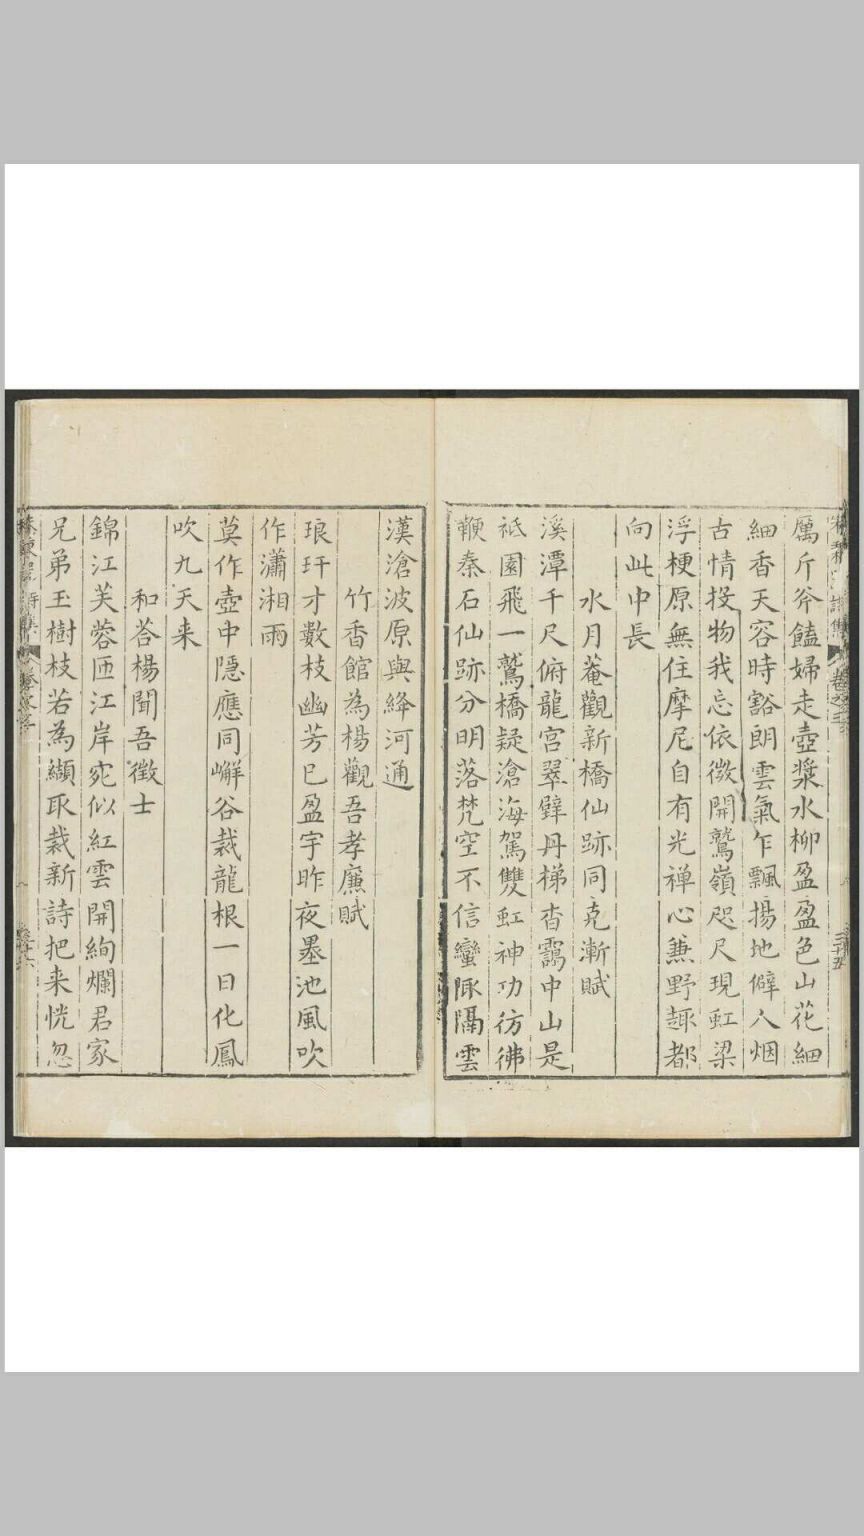 厲斤斧饁婦走壺漿水柳盈盈色山花細
細香天容時豁朗雲氣乍飄揚地僻人烟
古情投物我忘依微開鷲嶺咫尺現虹梁
浮梗原無住摩尼自有光禅心蕪野趣都
向此中長
水月菴觀新橋仙跡同克漸賦
溪潭千尺俯龍宮翠壁丹梯杳靄中山是
祇園飛一鷲橋疑滄海駕雙虹神功彷彿
鞭秦石仙跡分明落梵空不信蠻陬隔雲
漢滄波原與絳河通
竹香館為楊觀吾孝廉賦
琅玕才數枝幽芳已盈宇昨夜墨池風吹
作瀟湘雨
莫作壺中隱應同嶰谷裁龍根一日化鳳
吹九天来
和荅楊聞吾徵士
錦江芙蓉匝江岸宛似紅雲開絢爛君家
兄弟玉樹枝若為纈取裁新詩把来恍忽